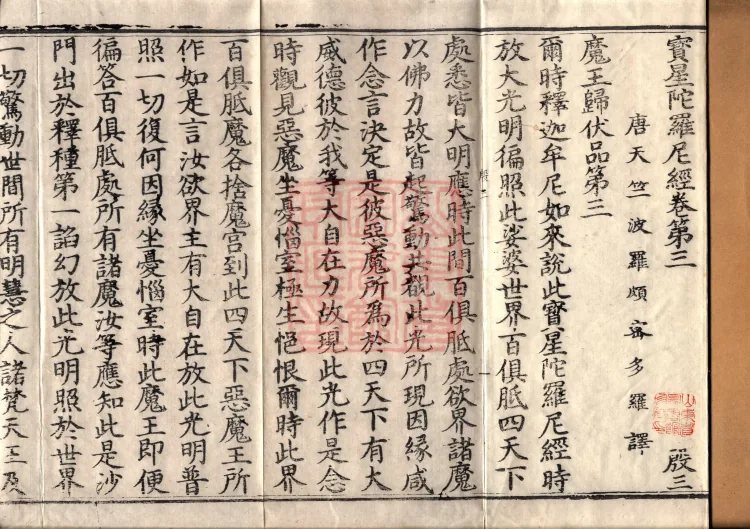 寶星陀羅尼經卷第三 殷三
唐天竺波羅頗蜜多羅譯
魔王歸伏品第三
爾時釋迦牟尼如來說此寶星陀羅尼經時
放大光明徧照此娑婆世界百俱胝四天下
處悉皆大明應時此間百俱胝處欲界諸魔
以佛力故皆起驚動共觀此光所現因緣咸
作念言決定是彼惡魔所為於四天下有大
威德彼於我等大自在力故現此光作是念
時觀見惡魔坐憂惱室極生悒恨爾時此界
百俱胝魔各捨魔宮到此四天下惡魔王所
作如是言汝欲界主有大自在放此光明普
照一切復何因緣坐憂惱室時此魔王即便
徧答百俱胝處所有諸魔汝等應知此是沙
門出於釋種第一諂幻放此光明照於世界
一切驚動世間所有明慧之人諸梵天王及